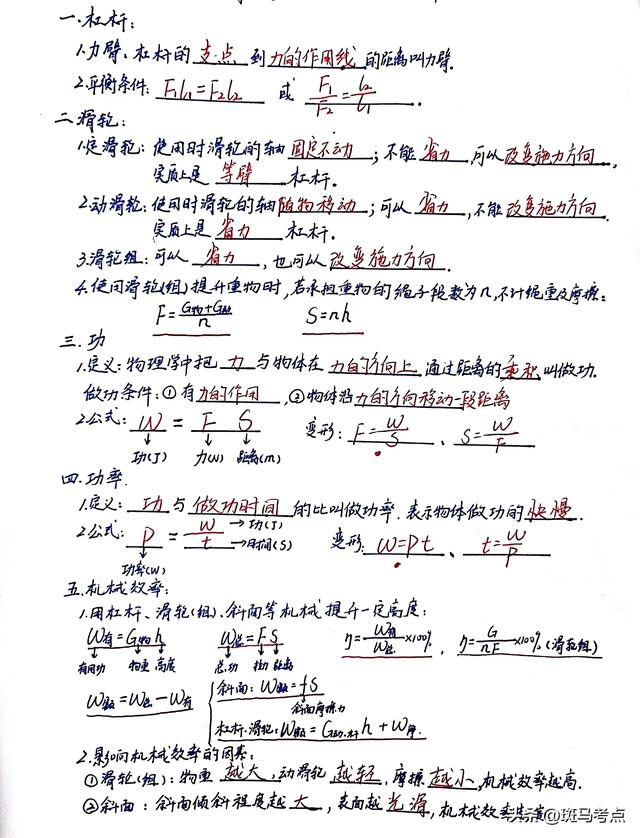 一.杠杆:
1.力臂、杠杆的支点到力的作用线的距离叫力臂.
2.平衡条件: F₁l₁=F₂l₂ 或 F₁/F₂=l₂/l₁.
二.滑轮:
1.定滑轮:使用时滑轮的轴固定不动;不能省力,可以改变施力方向,
实质上是等臂杠杆.
2.动滑轮:使用时滑轮的轴随物移动;可以省力,不能改变施力方向.
实质上是省力杠杆.
3.滑轮组:可以省力,也可以改变施力方向.
4.使用滑轮(组)提升重物时,若承担重物的绳子段数为n,不计绳重及摩擦:
F=(G物+G动)/n S=nh
三.功
1.定义:物理学中把力与物体在力的方向上通过距离的乘积叫做功.
做功条件:①有力的作用,②物体沿力的方向移动一段距离
2.公式: W = F S 变形: F=W/S、S=W/F
功(J) 力(N) 距离(m)
四.功率.
1.定义:功与做功时间的比叫做功率.表示物体做功的快慢.
2.公式: P = W/t →功(J) →时间(S) 变形: W=Pt、t=W/P
功率(W)
五.机械效率:
1.用杠杆、滑轮(组)、斜面等机械提升一定高度:
W有=G物h W总=FS η=W有/W总×100%, η=G/nF×100%(滑轮组)
有用功 物重 高度 总功 拉力 距离
W额=W总-W有 斜面:W额=fS
斜面摩擦力
杠杆.滑轮:W额=G动.杆h+W摩.
2.影响机械效率的因素:
①滑轮(组):物重越大,动滑轮越轻,摩擦越小,机械效率越高.
②斜面:斜面倾斜程度越大,表面越光滑,机械效率
@斑马考点